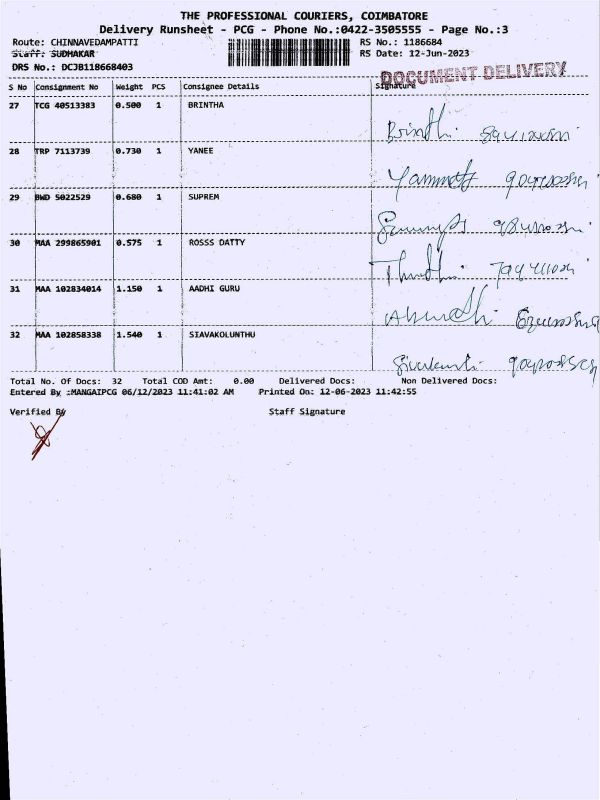 THE PROFESSIONAL COURIERS, COIMBATORE
Delivery Runsheet - PCG - Phone No.:0422-3505555 - Page No.:3
Route: CHINNAVEDAMPATTI RS No.: 1186684
Staff: SUDHAKAR RS Date: 12-Jun-2023
DRS No.: DCJB118668403
DOCUMENT DELIVERY
S No Consignment No Weight PCS Consignee Details Signature
27 TCG 40513383 0.500 1 BRINTHA
28 TRP 7113739 0.730 1 YANEE
29 BWD 5022529 0.680 1 SUPREM
30 MAA 299865901 0.575 1 ROSSS DATTY
31 MAA 102834014 1.150 1 AADHI GURU
32 MAA 102858338 1.540 1 SIAVAKOLUNTHU
Total No. Of Docs: 32 Total COD Amt: 0.00 Delivered Docs: Non Delivered Docs:
Entered By :MANGAIPCG 06/12/2023 11:41:02 AM Printed On: 12-06-2023 11:42:55
Verified By Staff Signature